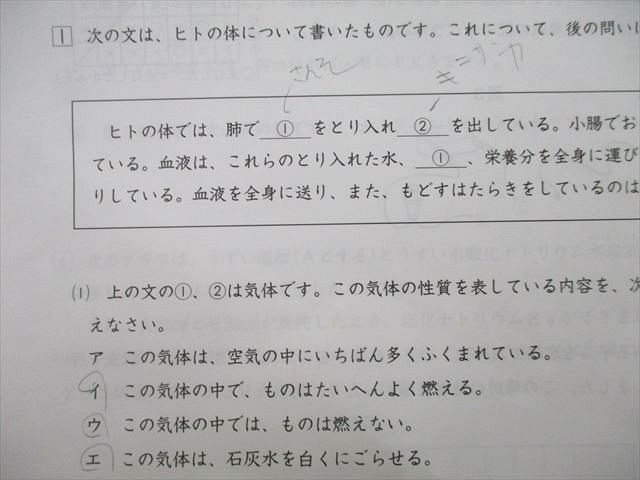 1 次の文は、ヒトの体について書いたものです。これについて、後の問いに
さんそ
ヒトの体では、肺で ① をとり入れ ② を出している。小腸でお
ている。血液は、これらのとり入れた水、 ① 、栄養分を全身に運び
りしている。血液を全身に送り、また、もどすはたらきをしているのは
(1) 上の文の①、②は気体です。この気体の性質を表している内容を、次
えなさい。
ア この気体は、空気の中にいちばん多くふくまれている。
イ この気体の中で、ものはたいへんよく燃える。
ウ この気体の中では、ものは燃えない。
エ この気体は、石灰水を白くにごらせる。